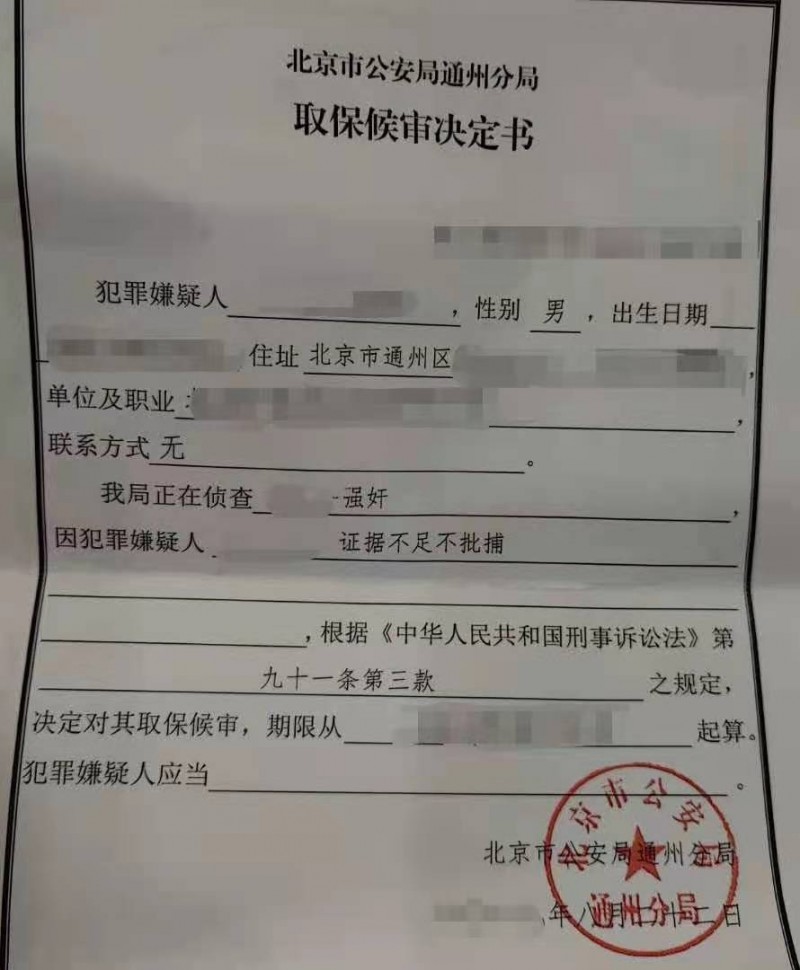 北京市公安局通州分局
取保候审决定书
犯罪嫌疑人，性别 男，出生日期
住址 北京市通州区，
单位及职业，
联系方式 无。
我局正在侦查 -强奸，
因犯罪嫌疑人 证据不足不批捕
，根据《中华人民共和国刑事诉讼法》第
九十一条第三款 之规定，
决定对其取保候审，期限从 起算。
犯罪嫌疑人应当。
北京市公安局
通州分局
北京市公安局通州分局
年八月二十二日